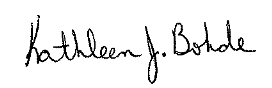 Kathleen J. Bohde